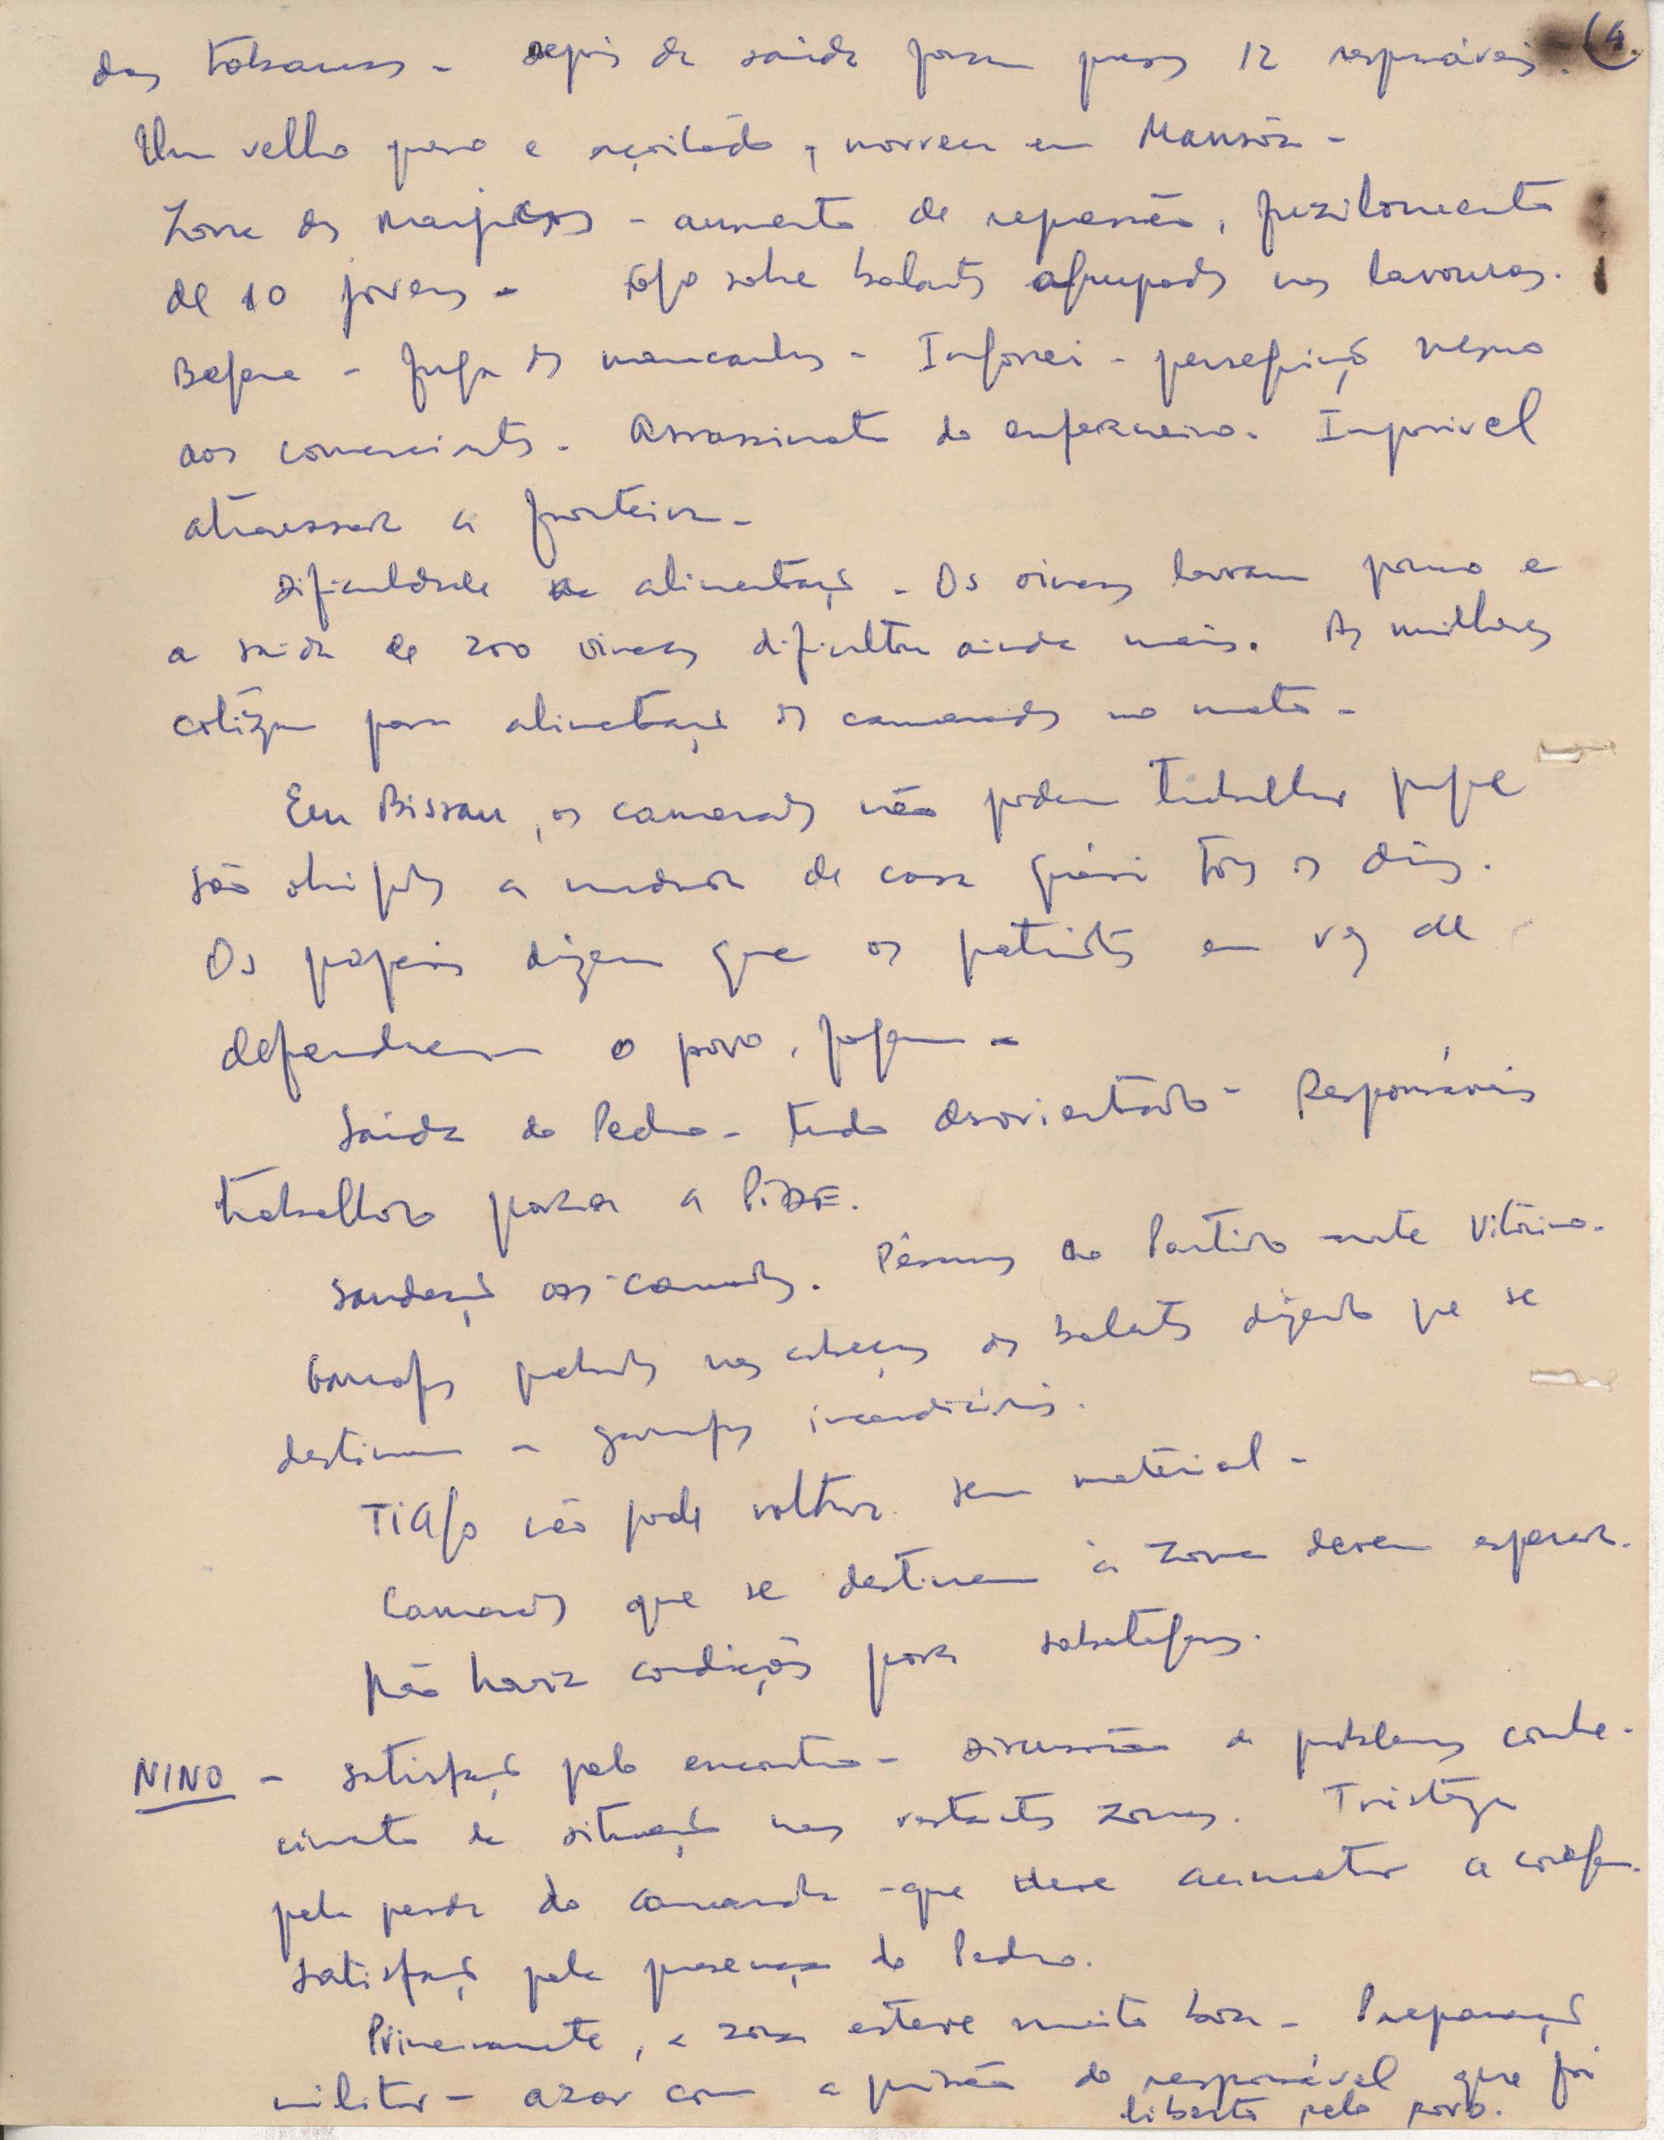 das tabancas - depois da saída foram presos 12 responsáveis. (4.
Um velho preso e açoitado, morreu em Mansôa -
Zona dos manjacos - aumento de repressão, fuzilamento
de 10 jovens - fogo sobre balantas agrupados nas lavouras.
Befene - fuga dos mancanhas - Ingorei - perseguição mesmo
aos comerciantes. Assassinato do enfermeiro. Impossivel
atravessar a fronteira -
Dificuldade na alimentação - Os oincas lavram pouco e
a saída de 200 oincas dificultou ainda mais. As mulheres
cotizam para alimentação dos camaradas no mato -
Em Bissau, os camaradas não podem trabalhar porque
são obrigados a mudar de casa quási todos os dias.
Os papeis dizem que os patriotas em vez de
defenderem o povo, fogem -
Saída do Pedro - tudo desorientado - Responsáveis
trabalhar para a PIDE.
Saudação aos camaradas. Pêsames ao Partido morte Vitorino.
Garrafas partidas nas cabeças dos balantas dizendo que se
destinam - garrafas incendiárias.
Tiago não pode voltar sem material -
Camaradas que se destinam à zona devem esperar.
Não havia condições para sabotagens.
NINO - Satisfação pelo encontro - Discussão de problemas conhe-
cimento da situação nas restantes zonas. Tristeza
pela perda do camarada - que deve aumentar a coragem.
Satisfação pela presença do Pedro.
Primeiramente, a zona esteve muito boa - Preparação
militar - azar com a prisão do responsável que foi
liberto pelo povo.